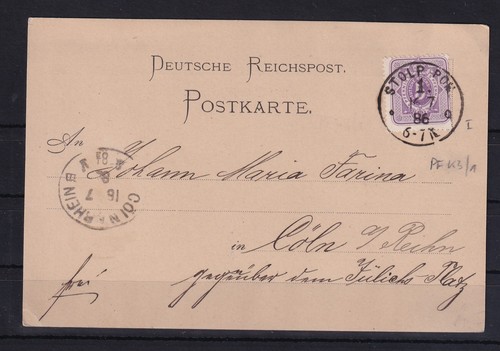 DEUTSCHE REICHSPOST.
POSTKARTE.
STOLP POM
1
7
86
6-7 N
I
PF
An Johann Maria Farina
CÖLN RHEIN
16
7
86
in Cöln a/Rhein
frei!
gegenüber dem Jülichs-Platz